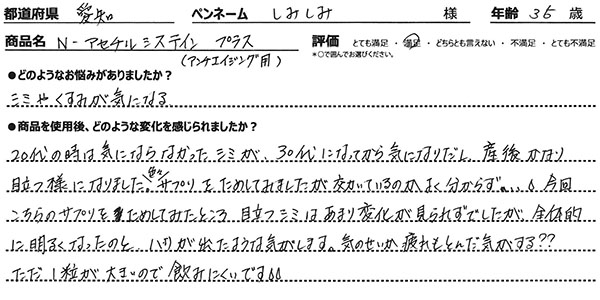 都道府県 愛知 ペンネーム しみしみ 様 年齢 35 歳
商品名 N-アセチルシステイン プラス 評価 とても満足 ・ 満足 ・ どちらとも言えない ・ 不満足 ・ とても不満足
(アンチエイジング用) *○で囲んでお選びください。
●どのようなお悩みがありましたか？
シミやくすみが気になる
●商品を使用後、どのような変化を感じられましたか？
20代の時は気にならなかったシミが、30代になってから気になりだし、産後かなり
目立つ様になりました。色々サプリをためしてみましたが効いているのかよく分からず。、、、今回
こちらのサプリをためしてみたところ、目立つシミはあまり変化が見られずでしたが、全体的
に明るくなったのと、ハリが出たような気がします。気のせいか疲れもとんだ気がする??
ただ1粒が大きいので飲みにくいです